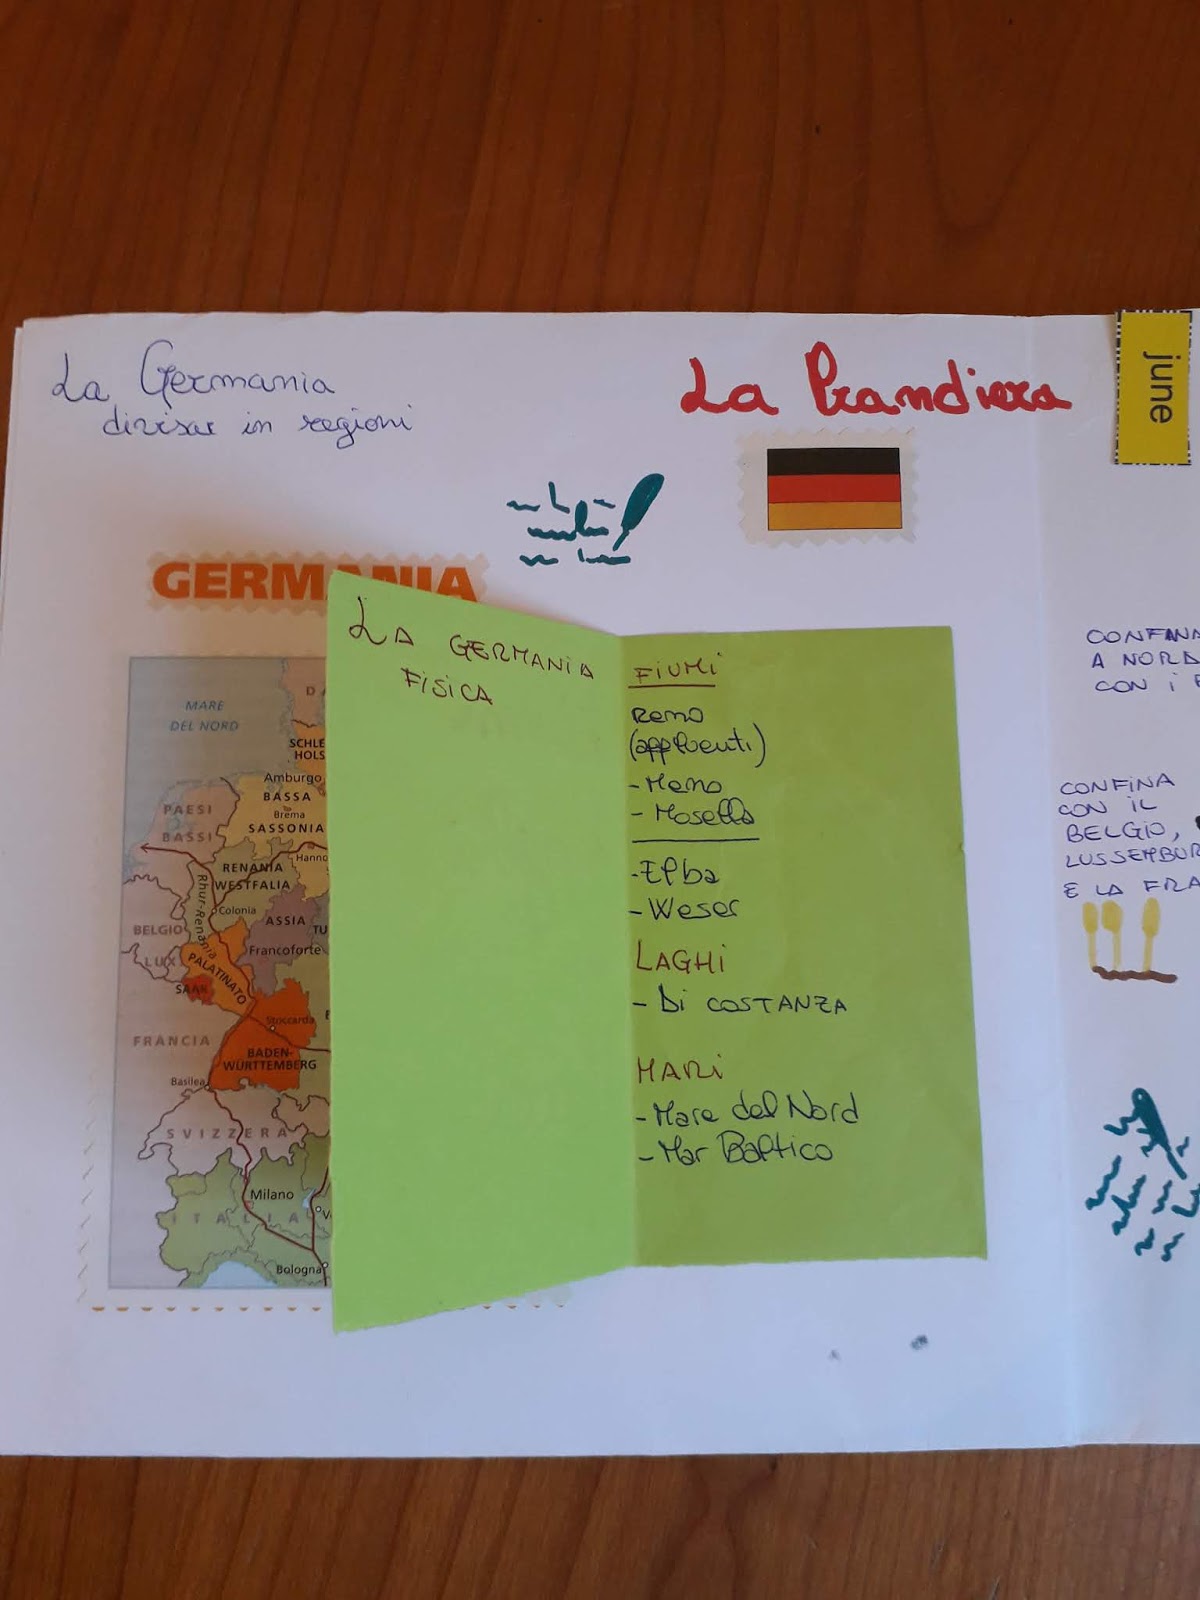 La Germania
divisa in regioni
La Bandiera
june
GERMANIA
MARE
DEL NORD
SCHLE
HOLS
Amburgo
BASSA
Brema
SASSONIA
PAESI
BASSI
Hanno
RENANIA
WESTFALIA
Rhur-Renania
Colonia
BELGIO
ASSIA
TU
Francoforte
LUX
PALATINATO
SAAR
Stoccarda
FRANCIA
BADEN-
WÜRTTEMBERG
Basilea
SVIZZERA
Milano
ITALIA
V
Bologna
LA GERMANIA
FISICA
FIUMI
Reno
(affluenti)
- Meno
- Mosella
- Elba
- Weser
LAGHI
- Di COSTANZA
MARi
- Mare del Nord
- Mar Baltico
CONFINA
A NORD
CON i
CONFINA
CON IL
BELGIO,
LUSSEMBUR
E LA FRA